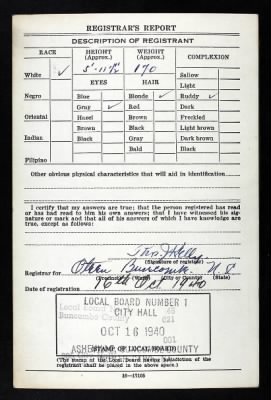 REGISTRAR'S REPORT
DESCRIPTION OF REGISTRANT
RACE HEIGHT (Approx.) WEIGHT (Approx.) COMPLEXION
White ✓ 5'-11½ 170 Sallow
EYES HAIR Light
Negro Blue Blonde ✓ Ruddy ✓
Gray ✓ Red Dark
Oriental Hazel Brown Freckled
Brown Black Light brown
Indian Black Gray Dark brown
Bald Black
Filipino
Other obvious physical characteristics that will aid in identification
I certify that my answers are true; that the person registered has read or has had read to him his own answers; that I have witnessed his signature or mark and that all of his answers of which I have knowledge are true, except as follows:
(Signature of registrar)
Registrar for Buncombe N. C.
(City or County) (State)
Date of registration 16th Oct 1940
LOCAL BOARD NUMBER 1
CITY HALL
Buncombe County
021
OCT 16 1940
001
(STAMP OF LOCAL BOARD)
COUNTY
(The stamp of the Local Board having jurisdiction of the registrant shall be placed in the above space.)
16—17105